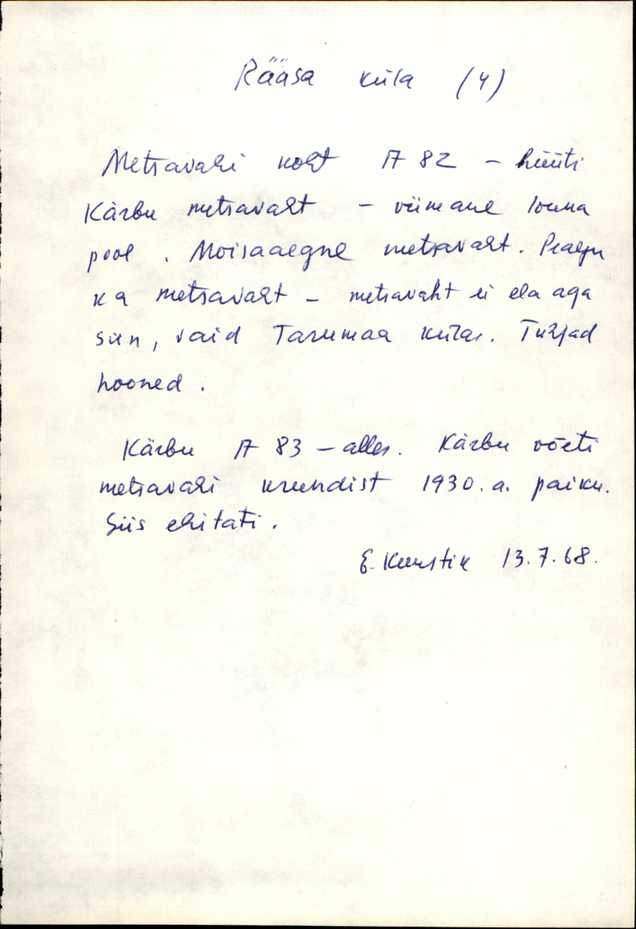 Rääsa küla (4)
Metsavahi koht A 82 - hüüti
Kärbu metsavaht - viimane lõuna
pool. Mõisaaegne metsavaht. Praegu
ka metsavaht - metsavaht ei ela aga
siin, vaid Tarumaa külas. Tühjad
hooned.
Kärbu A 83 - alles. Kärbu võeti
metsavahi krundist 1930. a. paiku.
Siis ehitati.
E. Kunstik 13.7.68.